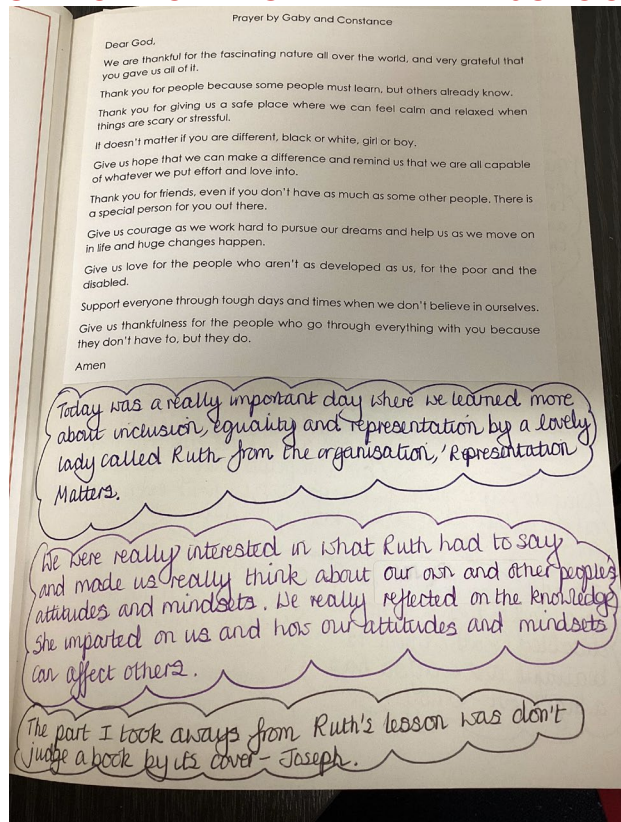 Prayer by Gaby and Constance
Dear God,
We are thankful for the fascinating nature all over the world, and very grateful that
you gave us all of it.
Thank you for people because some people must learn, but others already know.
Thank you for giving us a safe place where we can feel calm and relaxed when
things are scary or stressful.
It doesn't matter if you are different, black or white, girl or boy.
Give us hope that we can make a difference and remind us that we are all capable
of whatever we put effort and love into.
Thank you for friends, even if you don't have as much as some other people. There is
a special person for you out there.
Give us courage as we work hard to pursue our dreams and help us as we move on
in life and huge changes happen.
Give us love for the people who aren't as developed as us, for the poor and the
disabled.
Support everyone through tough days and times when we don't believe in ourselves.
Give us thankfulness for the people who go through everything with you because
they don't have to, but they do.
Amen
Today was a really important day where we learned more
about inclusion, equality and representation by a lovely
lady called Ruth from the organisation, 'Representation
Matters.
We were really interested in what Ruth had to say
and made us really think about our own and other people's
attitudes and mindsets. We really reflected on the knowledge
she imparted on us and how our attitudes and mindsets
can affect others.
The part I took aways from Ruth's lesson was don't
judge a book by its cover - Joseph.